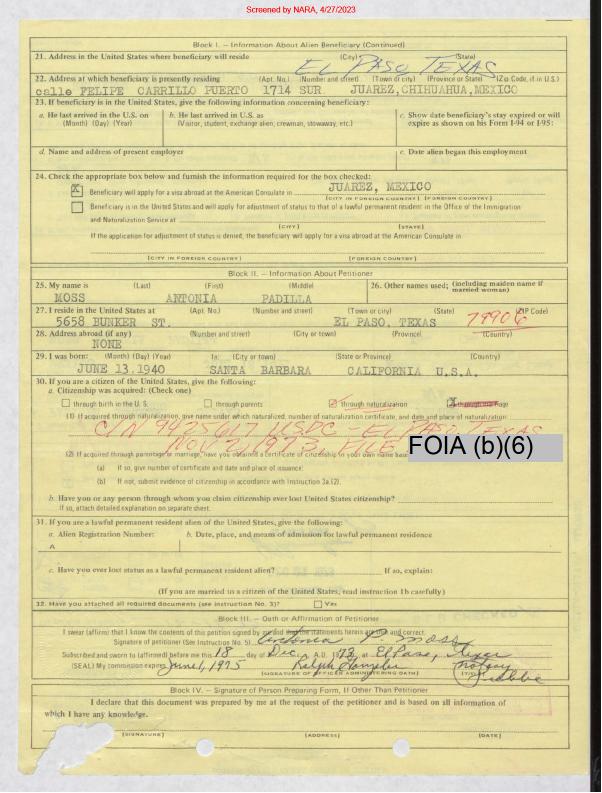 Screened by NARA, 4/27/2023
Block I. – Information About Alien Beneficiary (Continued)
21. Address in the United States where beneficiary will reside (City) (State)
EL PASO, TEXAS
22. Address at which beneficiary is presently residing (Apt. No.) (Number and street) (Town or city) (Province or State) (Zip Code, if in U.S.)
calle FELIPE CARRILLO PUERTO 1714 SUR. JUAREZ, CHIHUAHUA, MEXICO
23. If beneficiary is in the United States, give the following information concerning beneficiary:
a. He last arrived in the U.S. on (Month) (Day) (Year)
b. He last arrived in U.S. as (Visitor, student, exchange alien, crewman, stowaway, etc.)
c. Show date beneficiary's stay expired or will expire as shown on his Form I-94 or I-95:
d. Name and address of present employer
e. Date alien began this employment
24. Check the appropriate box below and furnish the information required for the box checked:
X Beneficiary will apply for a visa abroad at the American Consulate in JUAREZ, MEXICO
(CITY IN FOREIGN COUNTRY) (FOREIGN COUNTRY)
Beneficiary is in the United States and will apply for adjustment of status to that of a lawful permanent resident in the Office of the Immigration
and Naturalization Service at
(CITY) (STATE)
If the application for adjustment of status is denied, the beneficiary will apply for a visa abroad at the American Consulate in
(CITY IN FOREIGN COUNTRY) (FOREIGN COUNTRY)
Block II. – Information About Petitioner
25. My name is (Last) (First) (Middle)
26. Other names used; (including maiden name if married woman)
MOSS ANTONIA PADILLA
27. I reside in the United States at (Apt. No.) (Number and street) (Town or city) (State) (ZIP Code)
5658 BUNKER ST. EL PASO, TEXAS 79906
28. Address abroad (if any) (Number and street) (City or town) (Province) (Country)
NONE
29. I was born: (Month) (Day) (Year) In: (City or town) (State or Province) (Country)
JUNE 13.1940 SANTA BARBARA CALIFORNIA U.S.A.
30. If you are a citizen of the United States, give the following:
a. Citizenship was acquired: (Check one)
through birth in the U.S. through parents through naturalization through marriage
(1) If acquired through naturalization, give name under which naturalized, number of naturalization certificate, and date and place of naturalization:
C/N 9425617 USDC – EL PASO, TEXAS
NOV 2, 1973, FILE FOIA (b)(6)
(2) If acquired through parentage or marriage, have you obtained a certificate of citizenship in your own name
(a) If so, give number of certificate and date and place of issuance:
(b) If not, submit evidence of citizenship in accordance with Instruction 3a.(2).
b. Have you or any person through whom you claim citizenship ever lost United States citizenship?
If so, attach detailed explanation on separate sheet.
31. If you are a lawful permanent resident alien of the United States, give the following:
a. Alien Registration Number: b. Date, place, and means of admission for lawful permanent residence
A
c. Have you ever lost status as a lawful permanent resident alien? If so, explain:
(If you are married to a citizen of the United States, read instruction 1b carefully)
32. Have you attached all required documents (see instruction No. 3)? Yes
Block III. – Oath or Affirmation of Petitioner
I swear (affirm) that I know the contents of this petition signed by me and that the statements herein are true and correct.
Signature of petitioner (See Instruction No. 5) Antonia P. Moss
Subscribed and sworn to (affirmed) before me this 18 day of Dec. A.D. 1973, at El Paso, Texas
(SEAL) My commission expires June 1, 1975 Ralph Notary
(SIGNATURE OF OFFICER ADMINISTERING OATH) (TITLE) Public
Block IV. – Signature of Person Preparing Form, If Other Than Petitioner
I declare that this document was prepared by me at the request of the petitioner and is based on all information of
which I have any knowledge.
(SIGNATURE) (ADDRESS) (DATE)